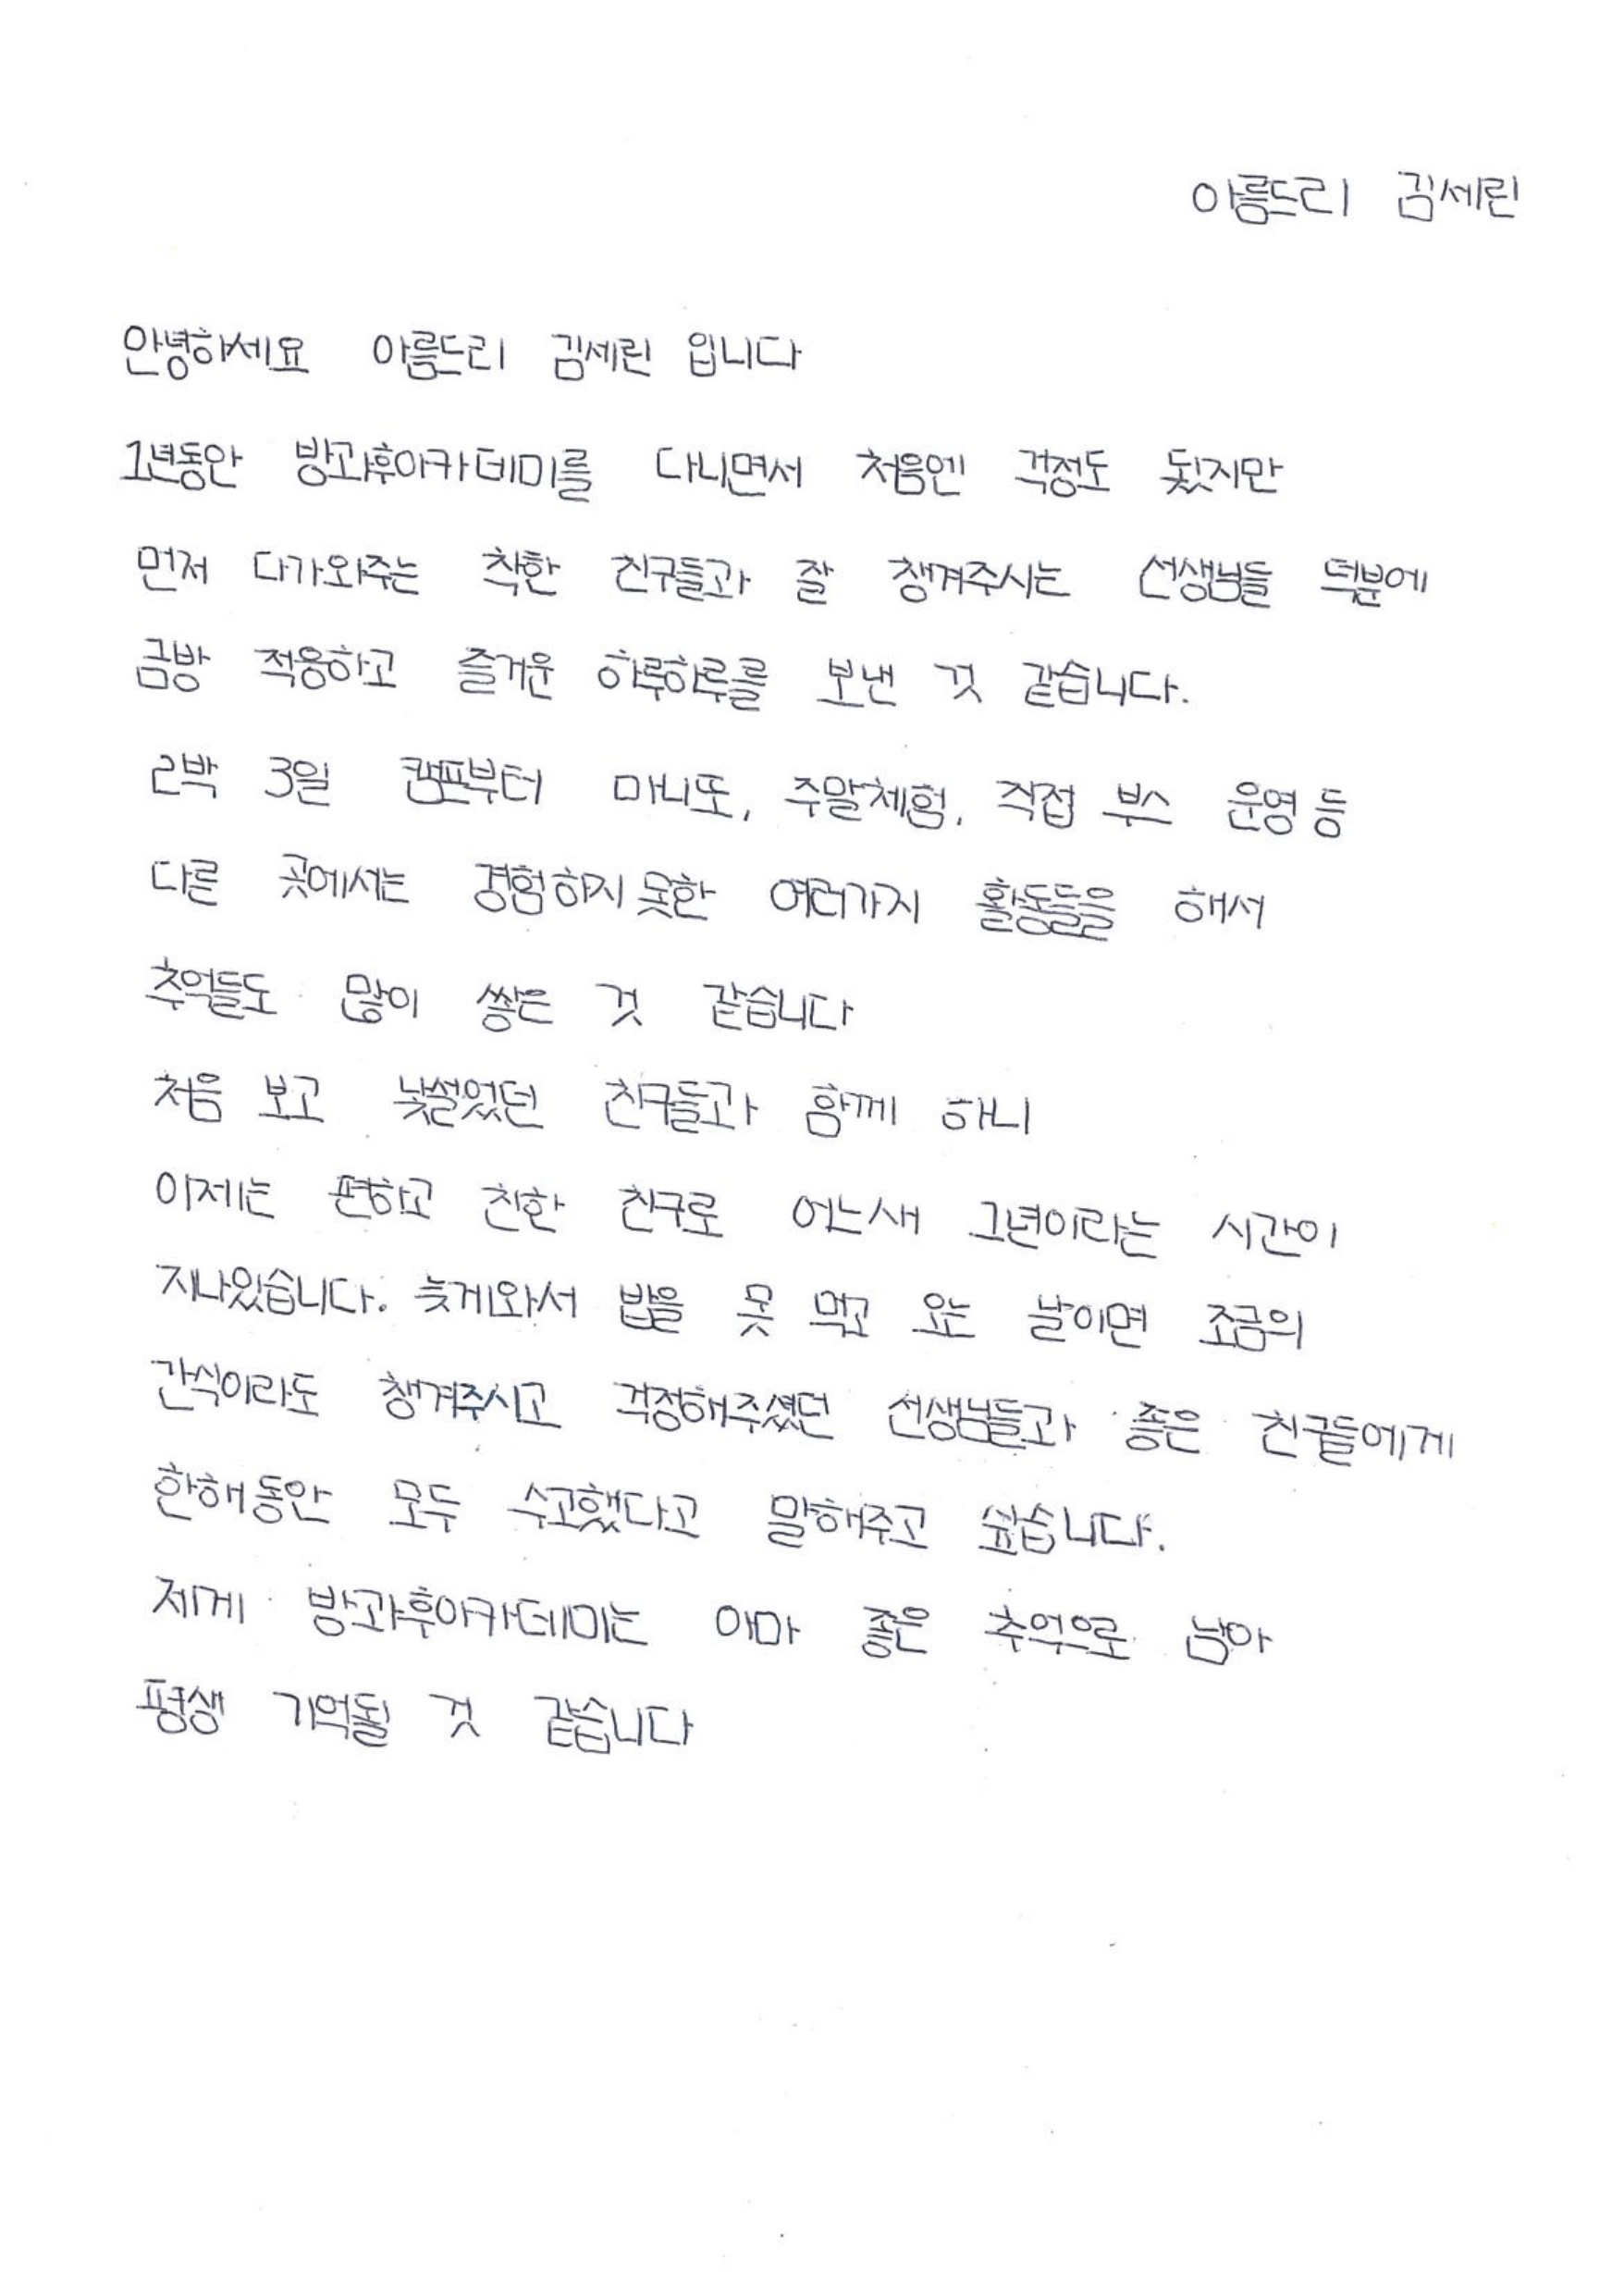 아름드리 김세린
안녕하세요 아름드리 김세린 입니다
1년동안 방과후아카데미를 다니면서 처음엔 걱정도 됐지만
먼저 다가와주는 착한 친구들과 잘 챙겨주시는 선생님들 덕분에
금방 적응하고 즐거운 하루하루를 보낸 것 같습니다.
2박 3일 캠프부터 마니또, 주말체험, 직접 부스 운영 등
다른 곳에서는 경험하지 못한 여러가지 활동들을 해서
추억들도 많이 쌓은 것 같습니다
처음 보고 낯설었던 친구들과 함께 하니
이제는 편하고 친한 친구로 어느새 1년이라는 시간이
지나있습니다. 늦게와서 밥을 못 먹고 오는 날이면 조금의
간식이라도 챙겨주시고 걱정해주셨던 선생님들과 좋은 친구들에게
한해동안 모두 수고했다고 말해주고 싶습니다.
제게 방과후아카데미는 아마 좋은 추억으로 남아
평생 기억될 것 같습니다